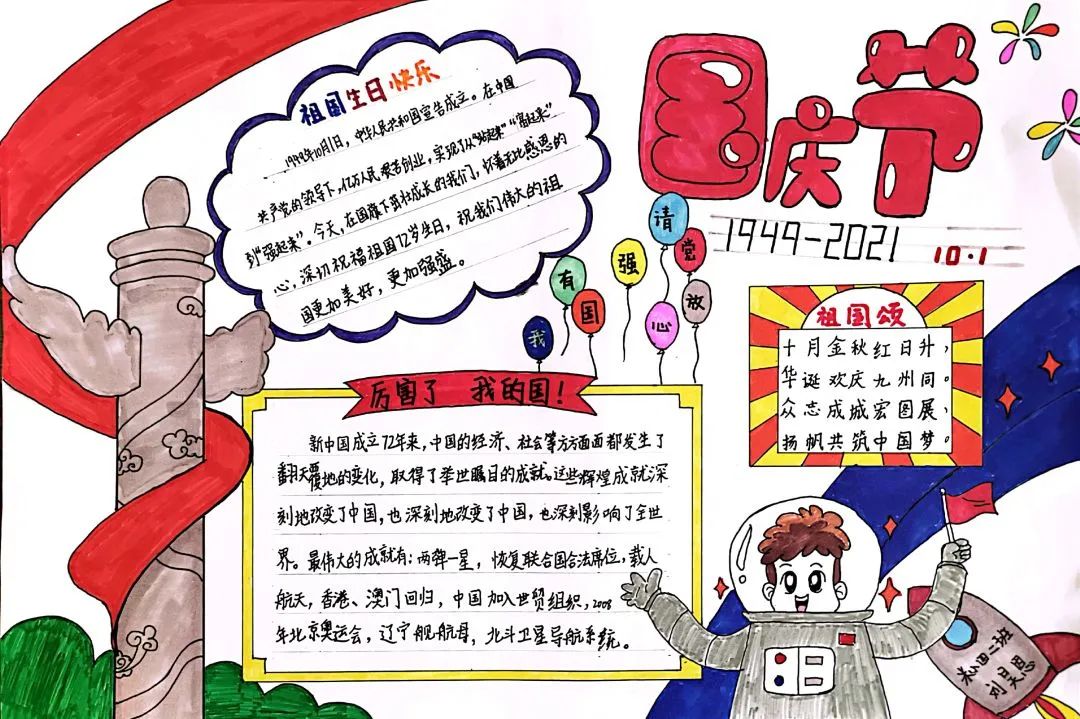 国庆节
1949-2021 10·1
祖国生日快乐
1949年10月1日,中华人民共和国宣告成立。在中国
共产党的领导下,亿万人民艰苦创业,实现了从“站起来”“富起来”
到“强起来”。今天,在国旗下茁壮成长的我们,怀着无比感恩的
心,深切祝福祖国72岁生日,祝我们伟大的祖
国更加美好,更加强盛。
我有国强请党放心
祖国颂
十月金秋红日升,
华诞欢庆九州同。
众志成城宏图展,
扬帆共筑中国梦。
厉害了 我的国!
新中国成立72年来,中国的经济、社会等方方面面都发生了
翻天覆地的变化,取得了举世瞩目的成就。这些辉煌成就深
刻地改变了中国,也深刻地改变了中国,也深刻影响了全世
界。最伟大的成就有:两弹一星,恢复联合国合法席位,载人
航天,香港、澳门回归,中国加入世贸组织,2008
年北京奥运会,辽宁舰航母,北斗卫星导航系统。